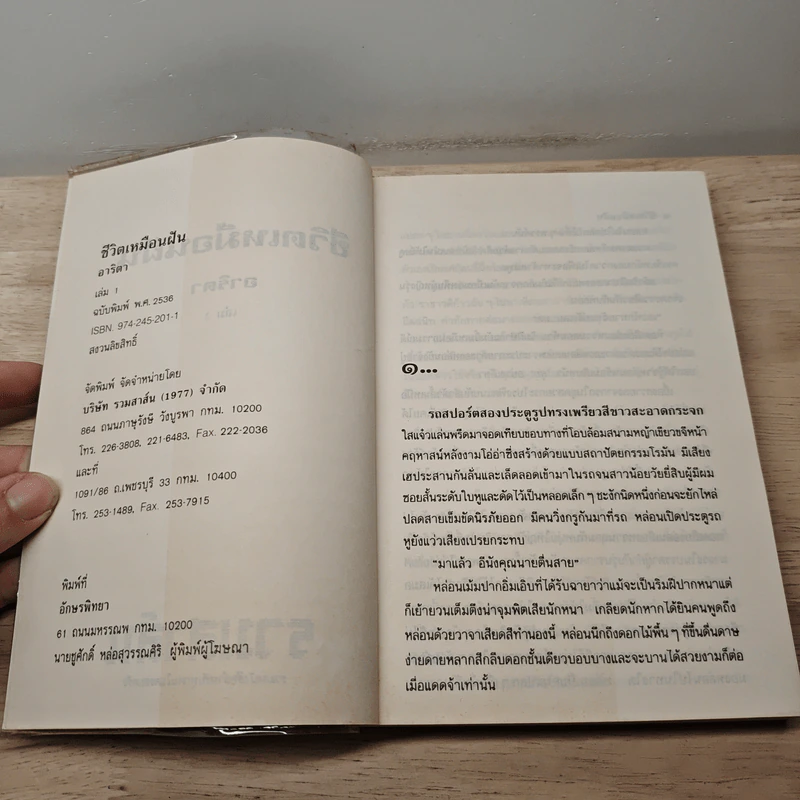 ชีวิตเหมือนฝัน
อาริตา
เล่ม 1
ฉบับพิมพ์ พ.ศ. 2536
ISBN. 974-245-201-1
สงวนลิขสิทธิ์
จัดพิมพ์ จัดจำหน่ายโดย
บริษัท รวมสาส์น (1977) จำกัด
864 ถนนภาษุรังษี วังบูรพา กทม. 10200
โทร. 226-3808, 221-6483, Fax. 222-2036
และที่
1091/86 ถ.เพชรบุรี 33 กทม. 10400
โทร. 253-1489, Fax. 253-7915
พิมพ์ที่
อักษรพิทยา
61 ถนนมหรรณพ กทม. 10200
นายชูศักดิ์ หล่อสุวรรณศิริ ผู้พิมพ์ผู้โฆษณา
๑...
รถสปอร์ตสองประตูรูปทรงเพรียวสีขาวสะอาดกระจก
ใสแจ๋วแล่นพรืดมาจอดเทียบขอบทางที่โอบล้อมสนามหญ้าเขียวขจีหน้า
คฤหาสน์หลังงามโอ่อ่าซึ่งสร้างด้วยแบบสถาปัตยกรรมโรมัน มีเสียง
เฮประสานกันลั่นและเล็ดลอดเข้ามาในรถจนสาวน้อยวัยยี่สิบผู้มีผม
ซอยสั้นระดับใบหูและดัดไว้เป็นหลอดเล็กๆ ชะงักนิดหนึ่งก่อนจะยักไหล่
ปลดสายเข็มขัดนิรภัยออก มีคนวิ่งกรูกันมาที่รถ หล่อนเปิดประตูรถ
หูยังแว่วเสียงเปรยกระทบ
“มาแล้ว อีนังคุณนายตื่นสาย”
หล่อนเม้มปากอิ่มเอิบที่ได้รับฉายาว่าแม้จะเป็นริมฝีปากหนาแต่
ก็เย้ายวนเต็มตึงน่าจุมพิตเสียนักหนา เกลียดนักหากได้ยินคนพูดถึง
หล่อนด้วยวาจาเสียดสีทำนองนี้ หล่อนนึกถึงดอกไม้พื้นๆ ที่ขึ้นดื่นดาษ
ง่ายดายหลากสีกลีบดอกชั้นเดียวบอบบางและจะบานได้สวยงามก็ต่อ
เมื่อแดดจ้าเท่านั้น